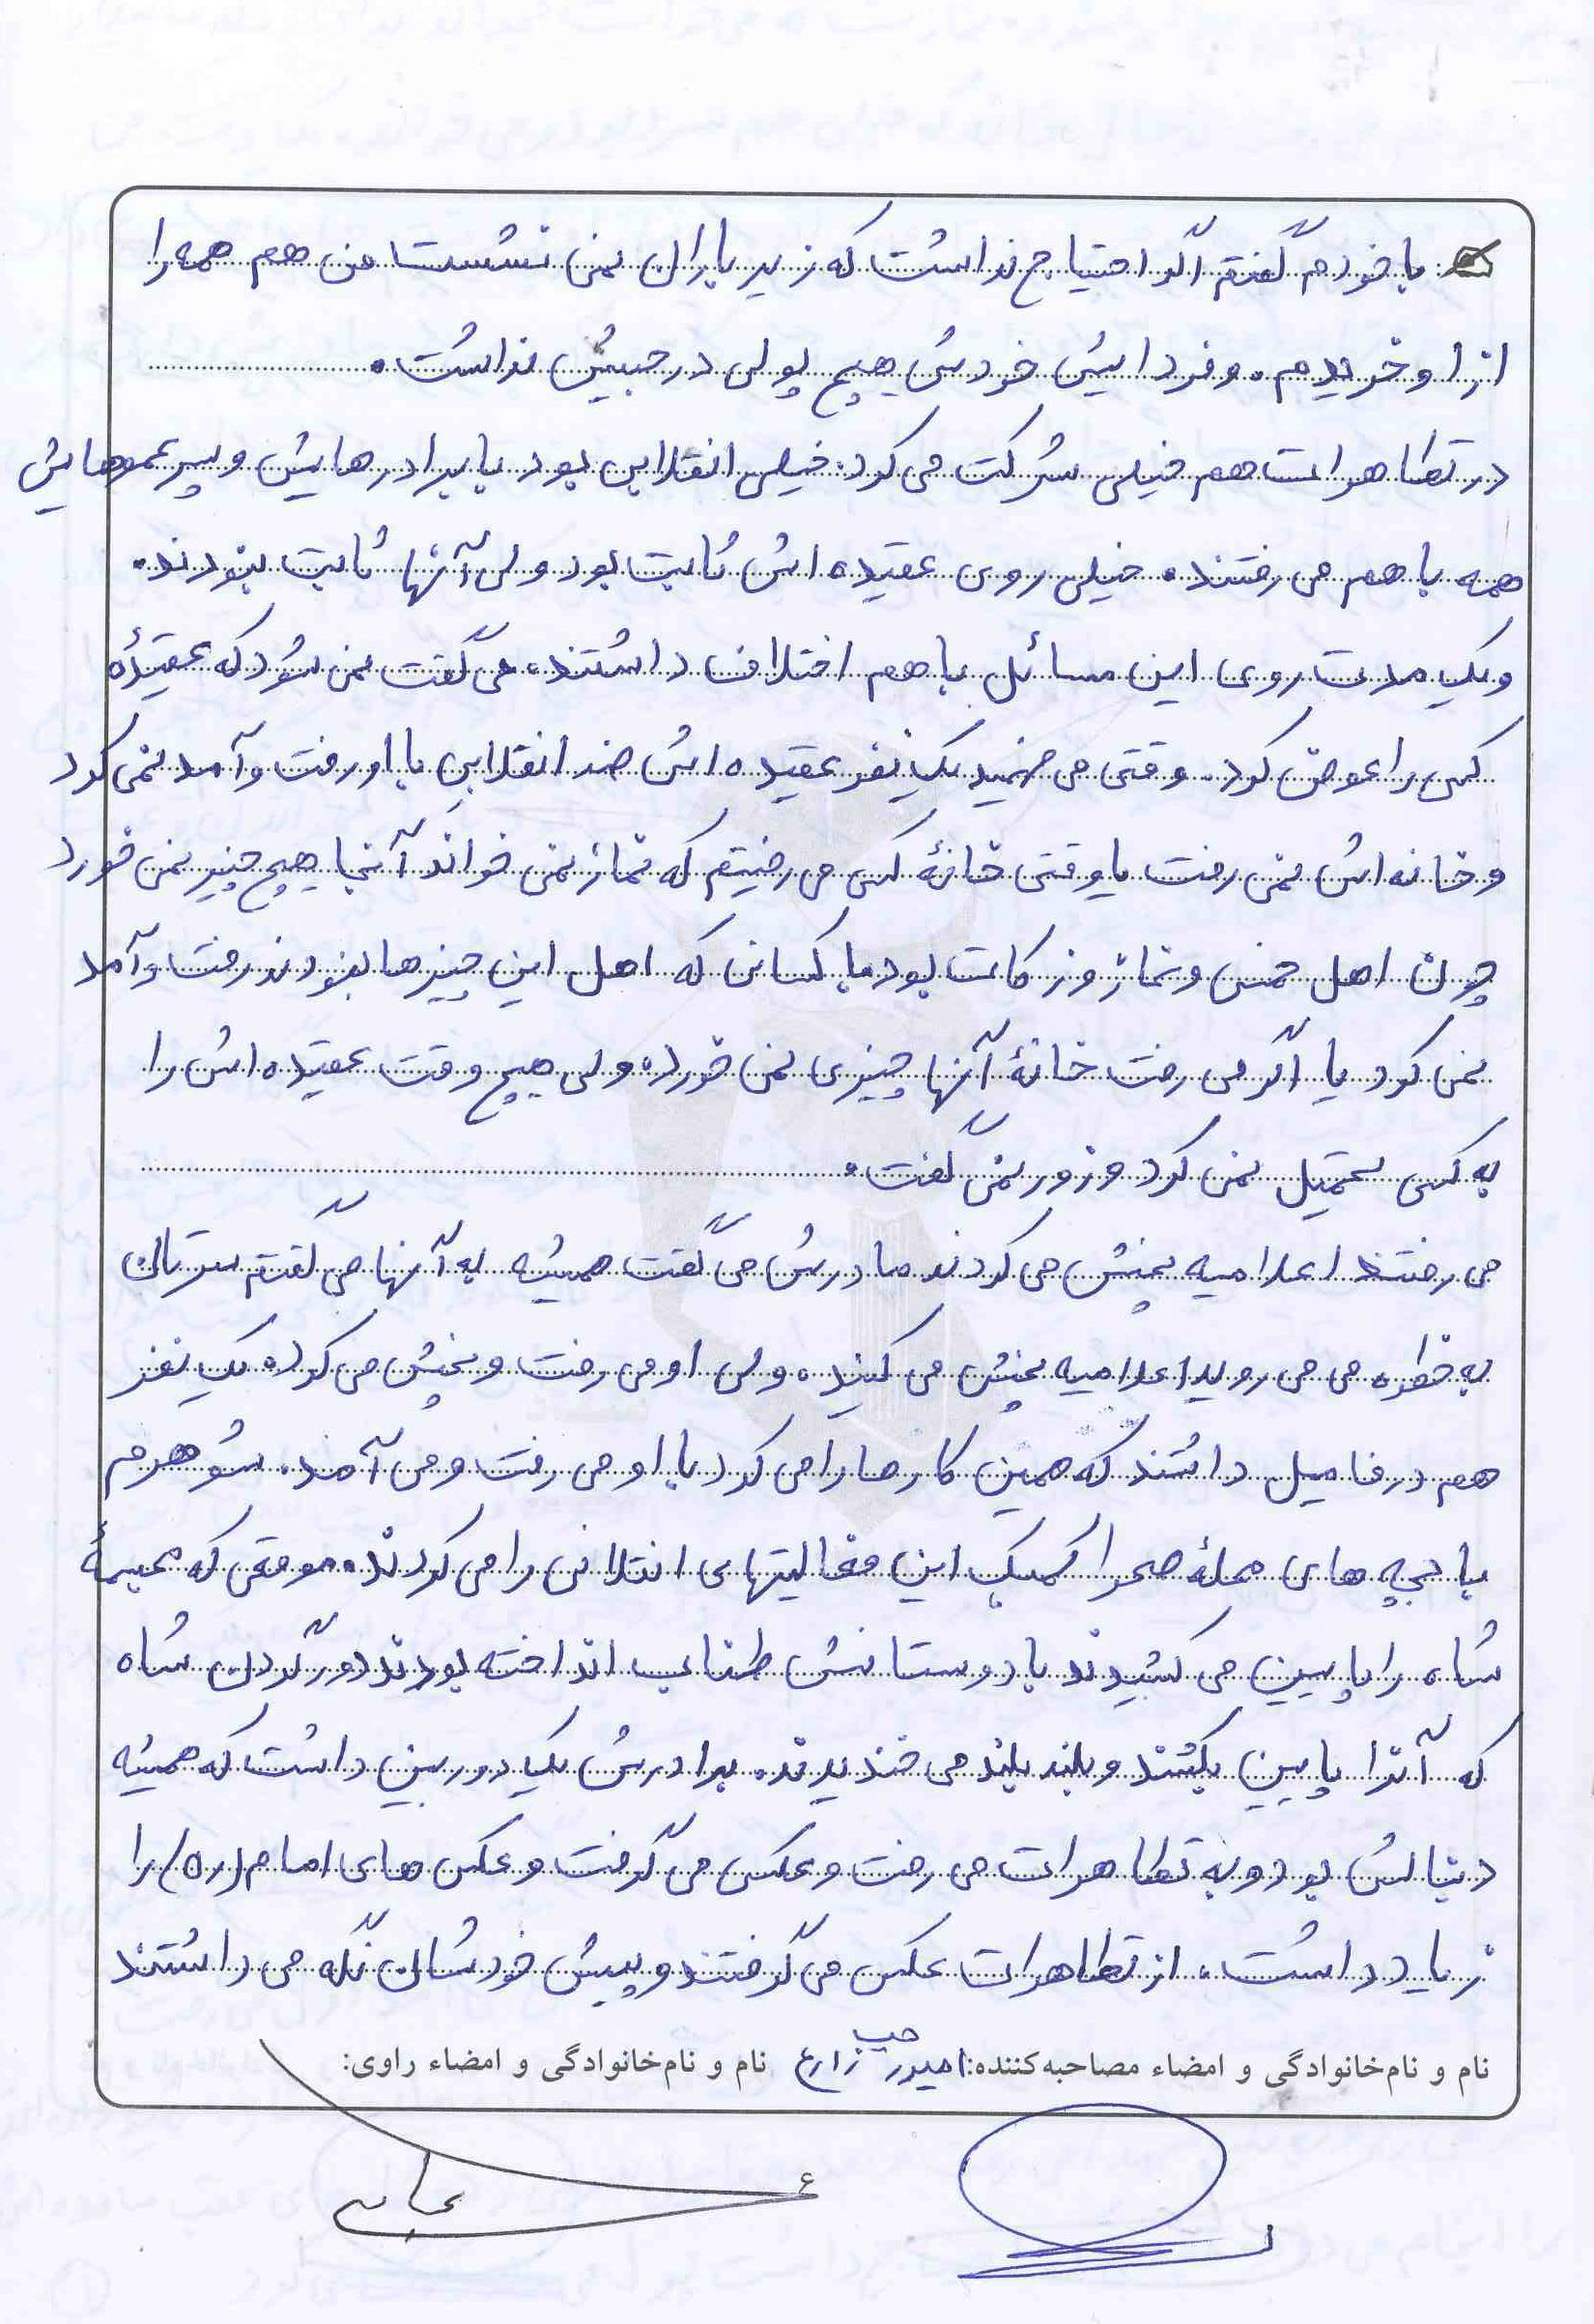 با خودم گفتم اگر احتیاج نداشت که زیر باران نمی نشست من هم همه را
از او خریدم. و فردایش خودش هیچ پولی در جیبش نداشت.
در تظاهرات هم خیلی شرکت می کرد. خیلی انقلابی بود با برادرهایش و پسرعموهایش
همه با هم می رفتند. خیلی روی عقیده اش ثابت بود ولی آنها ثابت نبودند.
و یک مدت روی این مسائل با هم اختلاف داشتند، می گفت نمی شود که عقیدهٔ
کسی را عوض کرد. وقتی می فهمید یک نفر عقیده اش ضد انقلابی با او رفت و آمد نمی کرد
و خانه اش نمی رفت یا وقتی خانهٔ کسی می رفتیم که نماز نمی خواند آنجا هیچ چیز نمی خورد
چون اهل خمس و نماز و زکات بود با کسانی که اهل این چیزها نبودند رفت و آمد
نمی کرد یا اگر می رفت خانهٔ آنها چیزی نمی خورد، ولی هیچ وقت عقیده اش را
به کسی تحمیل نمی کرد و زور نمی گفت.
می رفتند اعلامیه پخش می کردند مادرش می گفت همیشه به آنها می گفتم سرتان
به خطره می می روید اعلامیه پخش می کنید، ولی او می رفت و پخش می کرد، یک نفر
هم در فامیل داشتند که همین کارها را می کرد با او می رفت و می آمد. شوهرم
با بچه های محلهٔ صحرا کمپک این فعالیتهای انقلابی را می کردند. موقعی که مجسمهٔ
شاه را پایین می کشیدند با دوستانش طناب انداخته بودند دور گردن شاه
که آنرا پایین بکشند و بلند بلند می خندیدند. برادرش یک دوربین داشت که همیشه
دنبالش بود و به تظاهرات می رفت و عکس می گرفت و عکس های امام (ره) را
زیاد داشت، از تظاهرات عکس می گرفتند و پیش خودشان نگه می داشتند
نام و نام‌خانوادگی و امضاء مصاحبه‌کننده: زارع نام و نام‌خانوادگی و امضاء راوی: